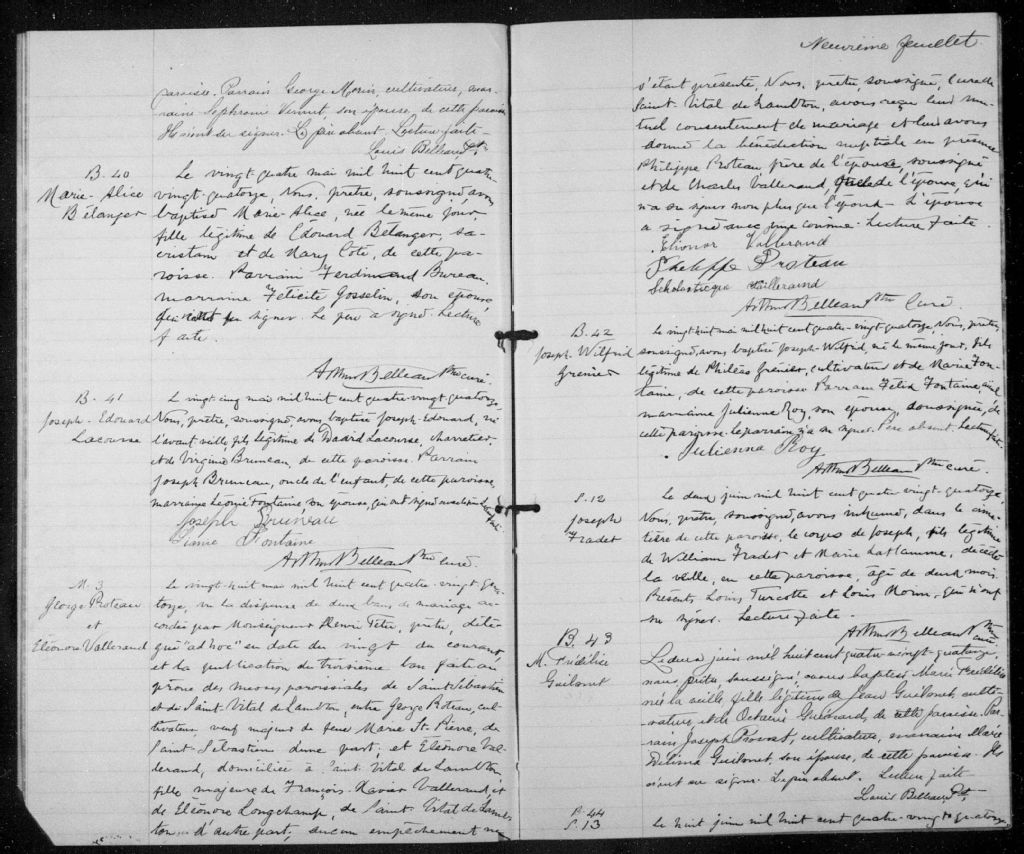 paroisse. Parrain George Morin, cultivateur, mar-
raine Sophronie son épouse, de cette paroisse
signer. Le père absent. Lecture faite.
Louis Belleau Ptre
B. 40
Marie-Alice
Bélanger
Le vingt quatre mai mil huit cent quatre-
vingt-quatorze, Nous, prêtre, soussigné, avons
baptisé Marie-Alice, née le même jour
fille légitime de Edouard Bélanger, sa-
cristain et de Mary Coté, de cette pa-
roisse. Parrain Ferdinand Bureau
marraine Félicité Gosselin, son épouse
qui signer. Le père a signé. Lecture
faite.
Arthur Belleau Ptre curé.
B. 41
Joseph-Edouard
Lacourse
Le vingt-cinq mai mil huit cent quatre-vingt-quatorze,
Nous, prêtre, soussigné, avons baptisé Joseph-Edouard, né
l'avant veille, fils légitime de David Lacourse, charretier,
et de Virginie Bruneau, de cette paroisse. Parrain
Joseph Bruneau, oncle de l'enfant, de cette paroisse,
marraine Fontaine, son épouse, qui ont signé Lecture faite
Joseph Bruneau
Fontaine
Arthur Belleau Ptre curé.
M. 3
George Proteau
et
Eléonore Vallerand
Le vingt-huit mai mil huit cent quatre-vingt qua-
torze, vu la dispense de deux bans de mariage ac-
cordée par Monseigneur Henri Têtu, prêtre, délé-
gué "ad hoc" en date du vingt du courant
et la publication du troisième ban faite au
prône des messes paroissiales de Saint-Sébastien
et de Saint-Vital de Lambton, entre George Proteau, cul-
tivateur veuf majeur de feue Marie St-Pierre, de
Saint-Sébastien d'une part; et Eléonore Val-
lerand, domiciliée à Saint-Vital de Lambton
fille majeure de François-Xavier Vallerand, et
de Eléonore Longchamp, de Saint-Vital de Lamb-
ton d'autre part, aucun empêchement ne
Neuvième feuillet.
s'étant présenté, Nous, prêtre, soussigné, Curé de
Saint-Vital de Lambton, avons reçu leur mu-
tuel consentement de mariage et leur avons
donné la bénédiction nuptiale en présence
Philippe Proteau père de l'époux, soussigné
et de Charles Vallerand, de l'épouse, qui
n'a su signer non plus que l'époux. L'épouse
a signé avec nous Lecture faite.
Elionor Vallerand
Philippe Proteau
Scholastique Vallerand
Arthur Belleau Ptre Curé.
B. 42
Joseph-Wilfrid
Grenier
Le vingt-huit mai mil huit cent quatre-vingt-quatorze, Nous, prêtre,
soussigné, avons baptisé Joseph-Wilfrid, né le même jour, fils
légitime de Philéas Grenier, cultivateur et de Marie Fon-
taine, de cette paroisse. Parrain Félix Fontaine,
marraine Julienne Roy, son épouse, soussignée, de
cette paroisse. Le parrain n'a su signer. Père absent. Lecture faite.
Julienna Roy
Arthur Belleau Ptre curé.
S. 12
Joseph
Fradet
Le deux juin mil huit cent quatre-vingt-quatorze
Nous, prêtre, soussigné, avons inhumé, dans le cime-
tière de cette paroisse, le corps de Joseph, fils légitime
de William Fradet et Marie Laflamme, décédé
la veille, en cette paroisse, âgé de deux mois.
Présents, Louis Turcotte et Louis Morin, qui n'ont
su signer. Lecture faite.
Arthur Belleau Ptre
curé
B. 43
M. Frédélice
Le deux juin mil huit cent quatre-vingt-quatorze,
nous prêtre soussigné, avons baptisé Marie Frédélice
née la veille, fille légitime de Jean culti-
vateur, et de de cette paroisse. Par-
rain Joseph cultivateur, marraine Marie
son épouse, de cette paroisse. Ils
n'ont su signer. Le père absent. Lecture faite
Louis Belleau, Ptre
B. 44
S. 13
Le huit juin mil huit cent quatre-vingt-quatorze